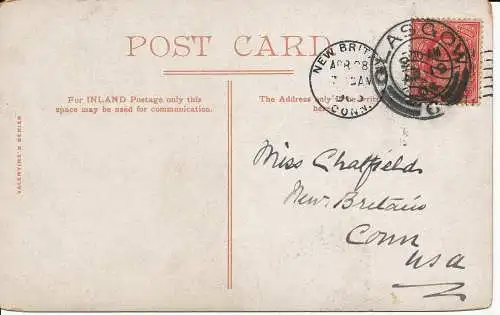 POST CARD
For INLAND Postage only this
space may be used for communication.
The Address only
here
VALENTINE'S SERIES
NEW BRITA
APR 28
AM
CONN.
GLASGOW
Miss Chatfield
New Britain
Conn
USA